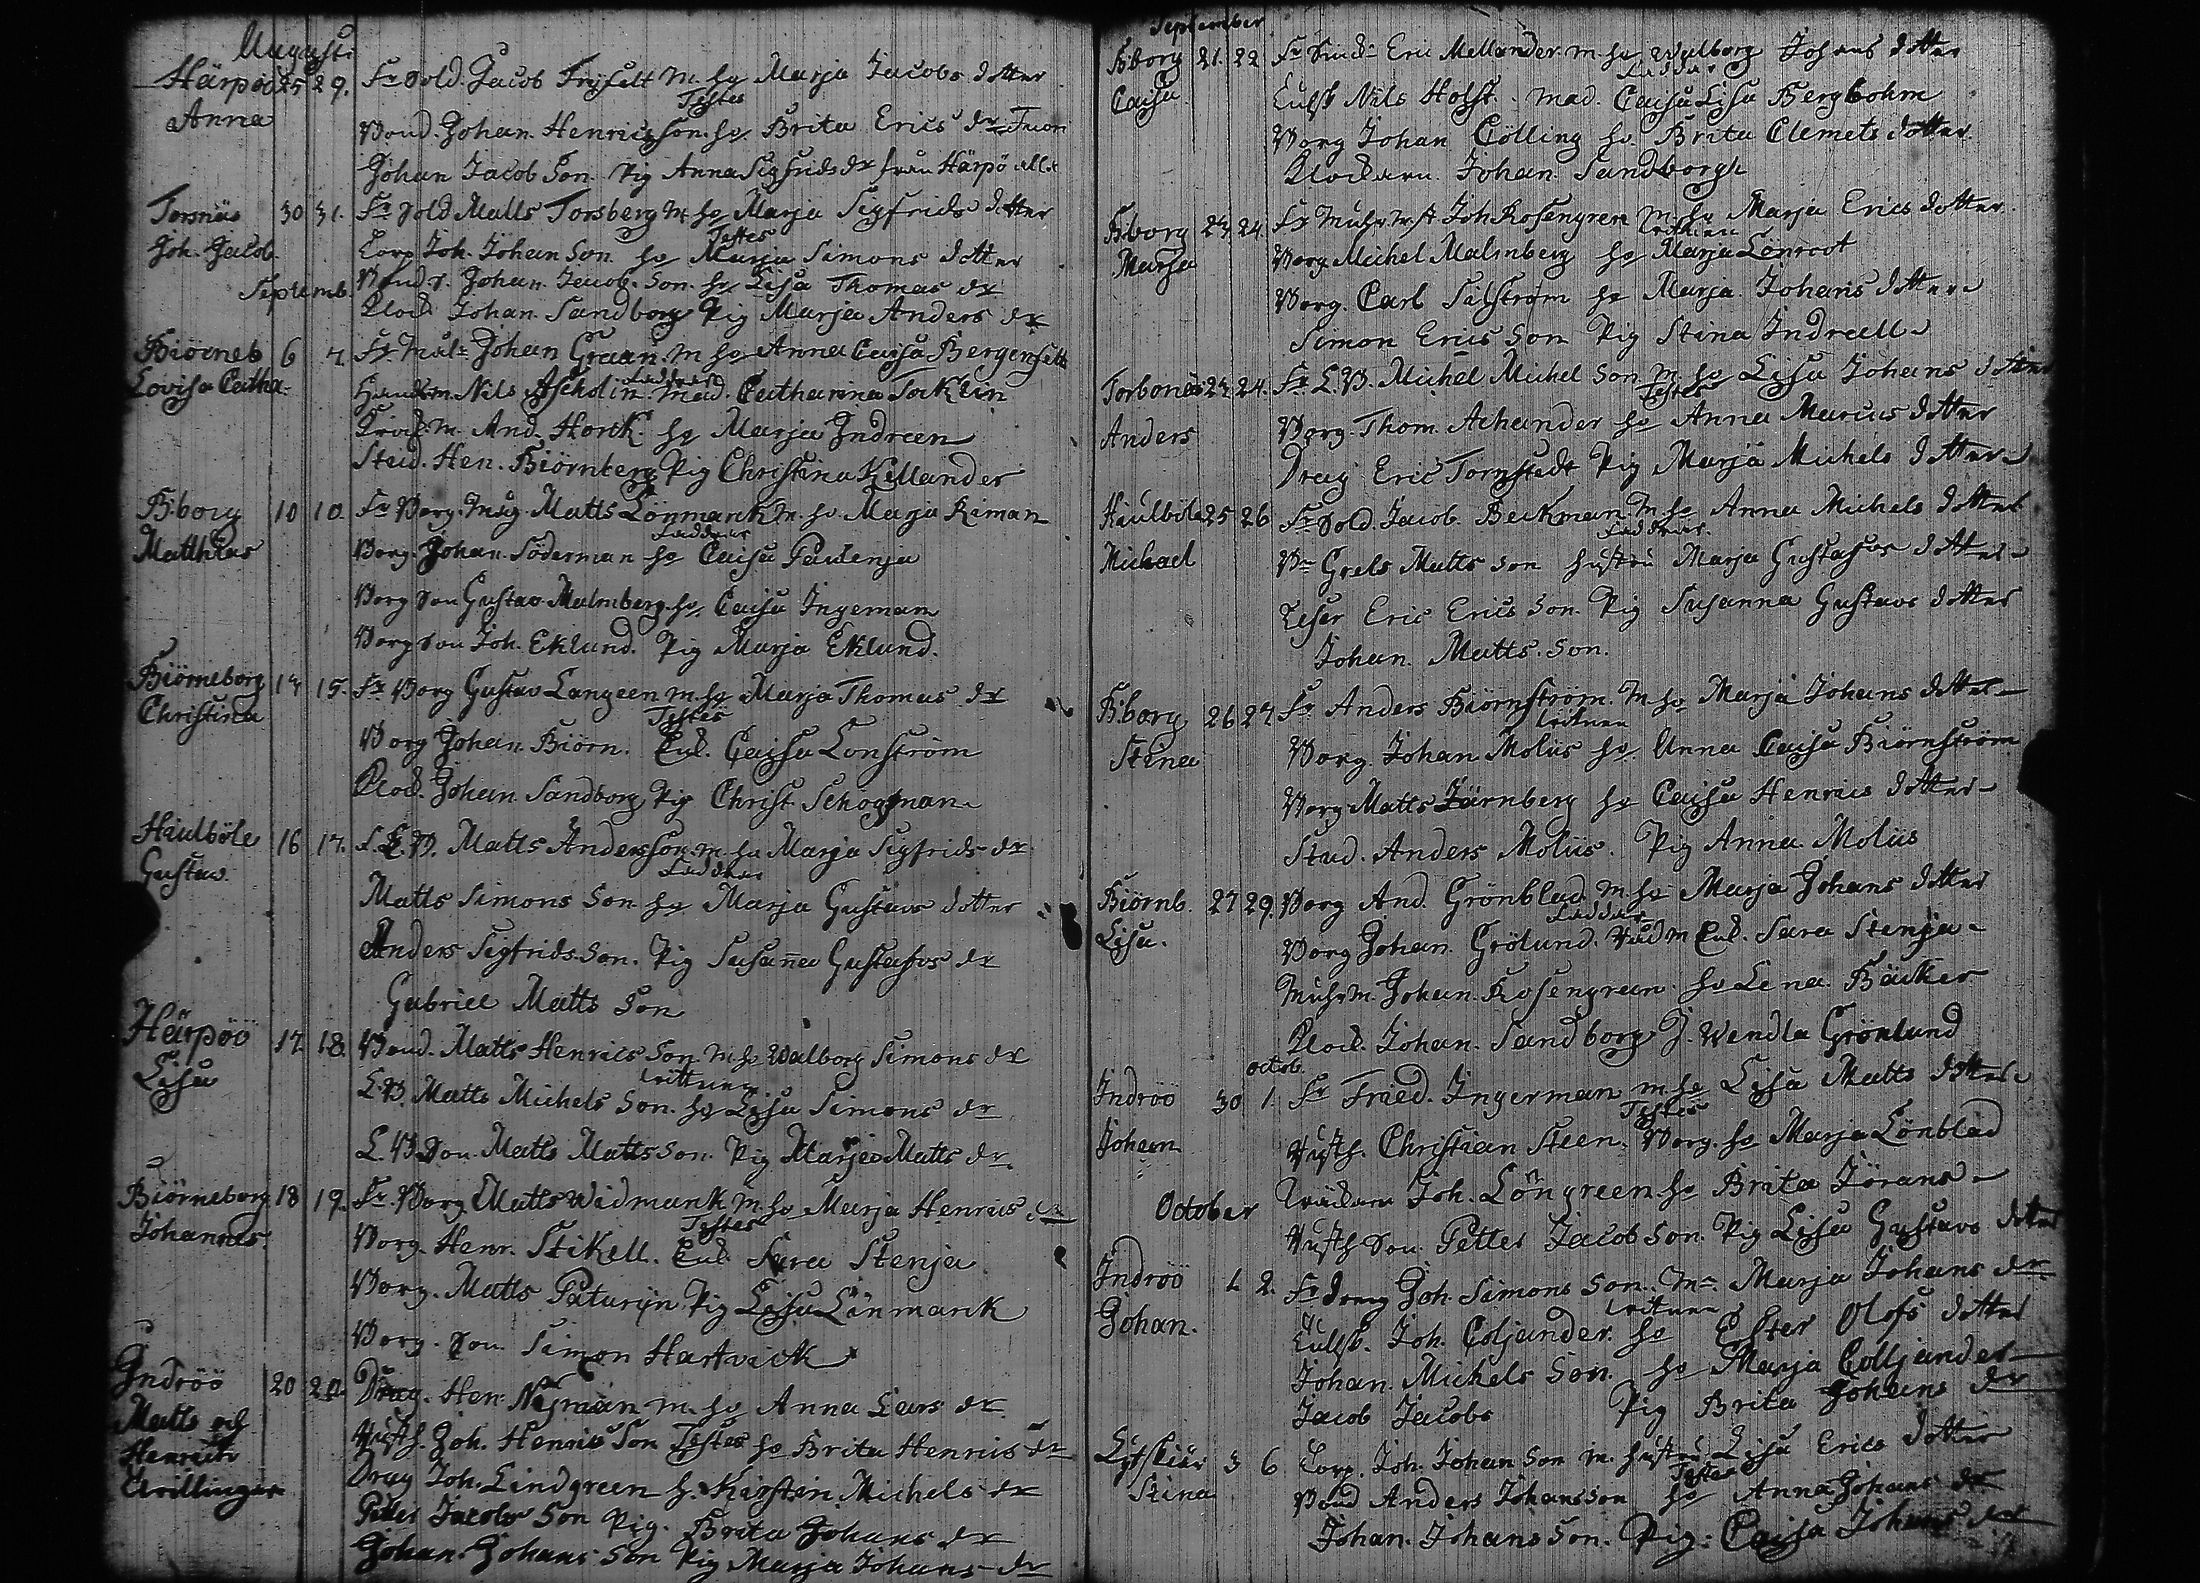 Augusti
Härpöö 25 29. Fr Sold. Jacob Friskelt m. ho Marja Jacobs dotter
Testes
Anna
Bond. Johan Henricsson. ho Brita Erics dr
Johan Jacob Son. Pig Anna Sigfrids dr från Härpö
Torsnäs 30 31. Fr Sold Matts Torsberg m. ho Marja Sigfrids dotter
Testes
Joh. Jacob Corp. Joh. Johan Son ho Marja Simons dotter
Septemb. Johan Jacob. Son. ho Lisa Thomas dr
Klock Johan Sandborg Pig Marja Anders dr
Biörneb 6 7. Johan Graan. m ho Anna Caisa Bergenfelt
Faddrar
Lovisa Catha. Nils Ascholin mad. Catharina Tocklin
And. Horck ho Marja Indreen
Stud. Hen. Biörnberg Pig Christina Kellander
B:borg 10 10. Fr Borg. Matts Lönmarck m. ho. Marja Riman
Faddrar
Matthias Borg. Johan Söderman ho Caisa Paulenja
Borg Son Gustav Malmberg ho Caisa Ingeman
Borg Son Joh. Eklund. Pig Marja Eklund.
Biörneborg 14 15. Fr Borg Gustav Langeen m. ho Marja Thomas dr
Testes
Christina Borg Johan Biörn. Enk. Caisa Lonström
Klock. Johan Sandborg Pig Christ. Schogman
Hiulböle 16 17. F. L.B. Matts Andersson. m. ho Marja Sigfrids dr
Faddrar
Gustav. Matts Simons Son ho Marja Gustavs dotter
Anders Sigfrids Son. Pig Susanna Gustafvs dr
Gabriel Matts Son
Härpöö 17. 18. Bond. Matts Henrics Son m. ho Walborg Simons dr
Wittnen
Lisa L.B. Matts Michels Son. ho Lisa Simons dr
L.B Son Matts Matts Son. Pig Marja Matts dr.
Biörneborg 18 19. Fr. Borg Matts Widmark m. ho Marja Henrics dr
Testes
Johannes. Borg. Henr. Stikell. Enk. Sara Stenja
Borg. Matts Paturijn Pig Lisa Lönmarck
Borg. Son Simon Hartvick
Indröö 20 20. Dreng. Hen. Nyman m. ho Anna Lars dr
Matts och Joh. Henrics Son Testes ho Brita Henrics dr
Henrich Dreng Joh. Lindgreen h. Kirstin Michels dr
Tvillingar Petter Jacobs Son Pig. Brita Johans dr
Johan Johans Son Pig Marja Johans dr
September
B:borg 21. 22 Fr Eric Mellander m. ho Walborg Johans dotter
Faddrar
Caisa. Nils Holst. mad. Caisa Lisa Bergbohm
Borg Johan Cölling ho. Brita Clemets dotter
Klockaren Johan Sandborgh
B:borg 23. 24. Fr Joh. Rosengren m. ho Marja Erics dotter
Wittnen
Marja Borg. Michel Malmberg ho Marja Lönroot
Borg. Carl Salström ho Marja Johans dotter
Simon Erics Son Pig Stina Indreell
Torbonäs 23 24. Fr L.B. Michel Michel Son m. ho Lisa Johans dotter
Testes
Anders Borg. Thom. Achander ho Anna Marcus dotter
Dreng Eric Tornstedt Pig Marja Michels dotter
Hiulböle 25 26 Fr Sold. Jacob Beckman m. ho Anna Michels dotter
Faddrar
Michael Grels Matts Son hustru Marja Gustafvs dotter
Eric Erics Son Pig Susanna Gustavs dotter
Johan Matts Son.
B:borg 26 27. Fr Anders Biörnström. m. ho Marja Johans dotter
Wittnen
Stina Borg. Johan Molüs ho. Anna Caisa Biörnström
Borg Matts Järnberg ho Caisa Henrics dotter
Stud. Anders Molüs. Pig Anna Molüs
Biörnb. 27 29. Borg And. Grönblad m. ho Marja Johans dotter
Faddrar
Lisa. Borg Johan Grölund. Enk. Sara Stenja
Murm. Johan Rosengreen ho Lena Bäcker
Klock. Johan Sandborg J. Wendla Grönlund
octob.
Indröö 30 1 Fr Fried. Ingerman m. ho Lisa Matts dotter
Testes
Johan Christian Steen. Borg. ho Marja Lönblad
Joh. Löngreen ho Brita Jörans
October Son Petter Jacob Son. Pig Lisa Gustavs dotter
Indröö 1. 2. Fr Dreng Joh. Simons Son. m. Marja Johans dr
Wittnen
Johan. Joh. Coljander. ho Ester Olofs dotter
Johan. Michels Son. ho Marja Colljander
Jacob Jacobs Pig Brita Johans dr
Lytskär 3 6 Corp. Joh. Johan Son m. hustru Lisa Erics dotter
Testes
Stina Bond Anders Johansson ho Anna Johans dr
Johan. Johans Son. Pig. Caisa Johans dr